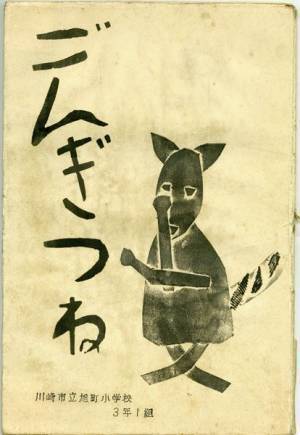 ごんぎつね
川崎市立旭町小学校
3年1組